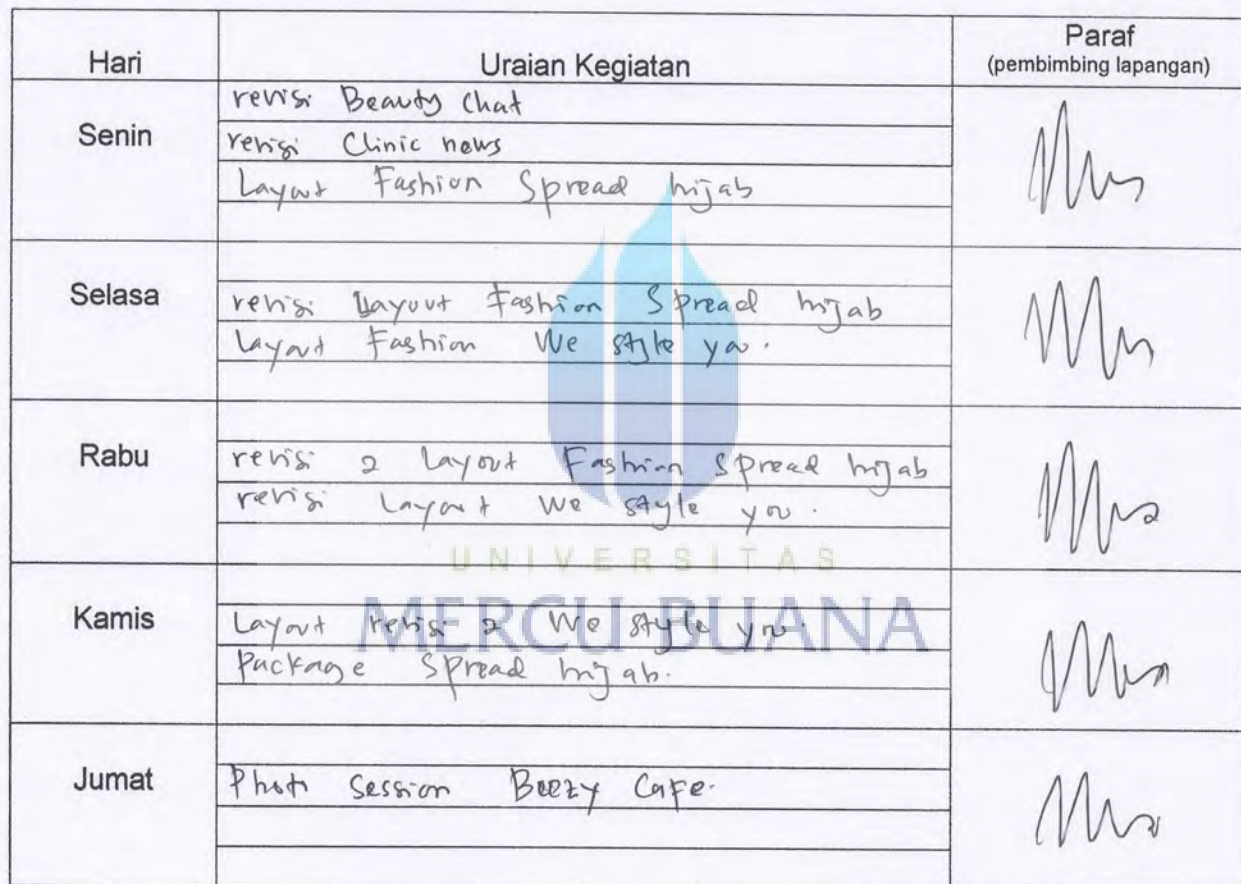 Hari
Uraian Kegiatan
Paraf
(pembimbing lapangan)
Senin
revisi Beauty Chat
revisi Clinic news
Layout Fashion Spread hijab
Selasa
revisi Layout Fashion Spread hijab
Layout Fashion We style you.
Rabu
revisi 2 Layout Fashion Spread hijab
revisi Layout We style you.
UNIVERSITAS
MERCU BUANA
Kamis
Layout revisi 2 We style you.
Package Spread hijab.
Jumat
Photo Session Beezy Cafe.